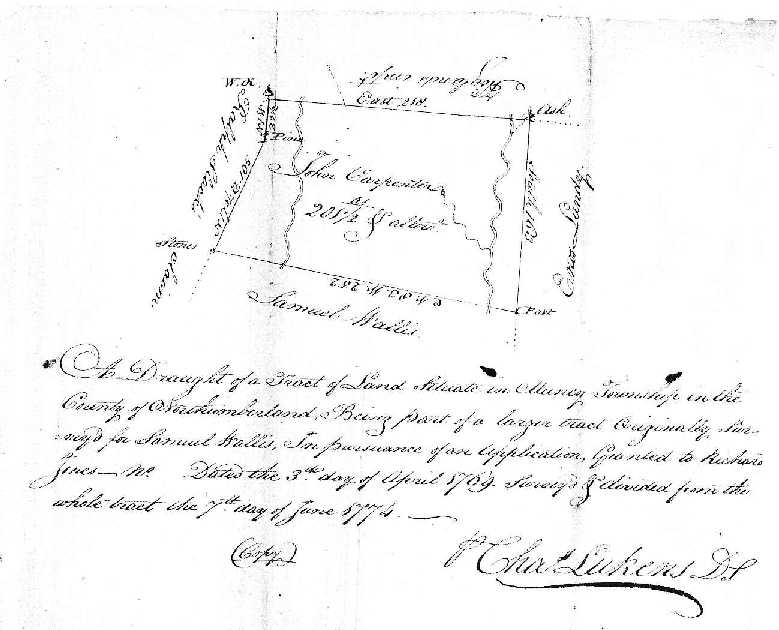 W. O.
East 218.
Ash
Pine
John Carpenter
201 1/2 & allow
Stones
Samuel Wallis
Post
A Draught of a Tract of Land Situate in Muncy Township in the
County of Northumberland, Being part of a larger tract Originally Sur-
vey'd for Samuel Wallis, In pursuance of an Application, Granted to Richard
Jones — No. Dated the 3th day of April 1769. Survey'd & divided from the
whole tract the 7th day of June 1774. —
(Copy)
Chas. Lukens D.S